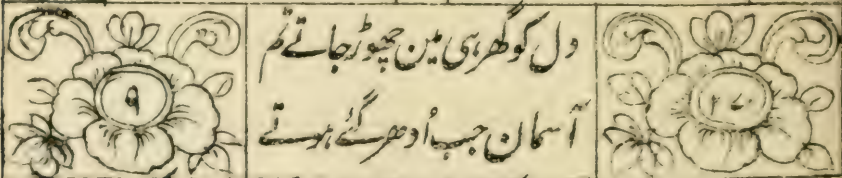 ۲۷
دل کو گھر ہی مین چھوڑ جاتے تم
آسمان جب اُدھر گئے ہوتے
۹